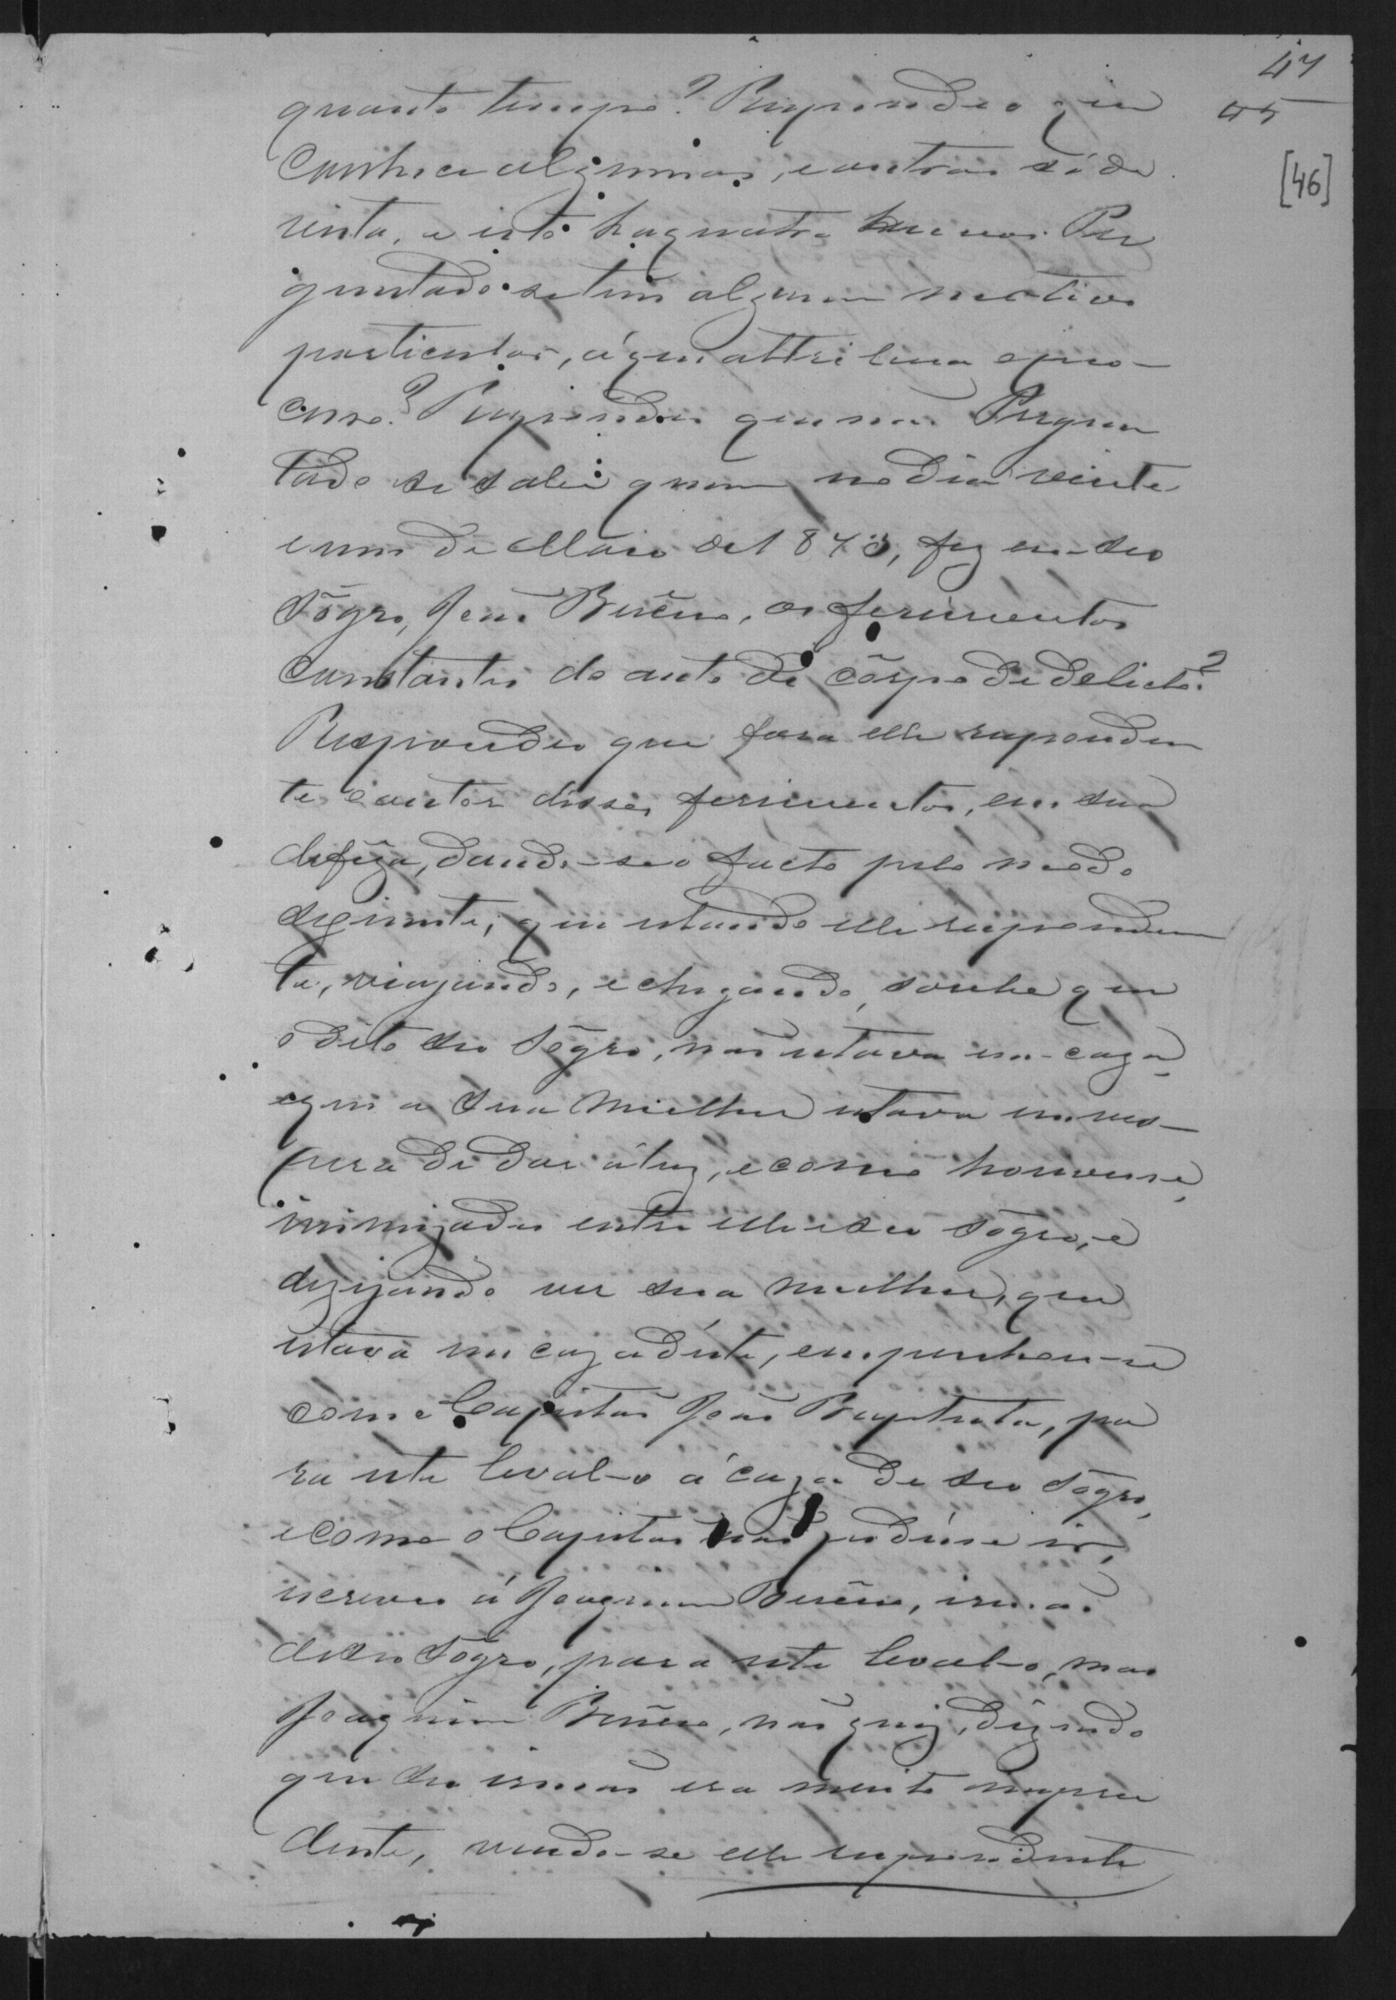 47
45
[46]
quanto tempo? Respondeo que
conhece algumas, e outras só de
vista, e isto ha quatro mezes. Per
guntado se tem algum motivo
particular, á que attribua o pro-
cesso? Respondeo que não. Pergun
tado se sabe quem no dia vinte
e um de Maio de 1873, fez em seo
sôgro, João Buêno, os ferimentos
constantes do auto de côrpo de delicto?
Respondeo que fora elle responden
te o autor desses ferimentos, em sua
defêza, dando-se o facto pelo modo
seguinte; que estando elle responden
te, viajando, e chegando, soube que
o dito seo sôgro, não estava em caza,
e que a sua mulher estava em ves-
pera de dar á luz, e como houvesse,
inimizades entre elle e seo sôgro, e
dezejando ver sua mulher, que
estava em caza deste, empenhou-se
com o Capitão João Baptista, pa
ra este leval-o á caza de seo sôgro,
e como o Capitão não podesse ir,
escreveo á Joaquim Buêno, irmão
de seo sôgro, para este leval-o, mas
Joaquim Buêno, não quiz, dizendo
que seo irmão era muito impru
dente, vendo-se elle respondente